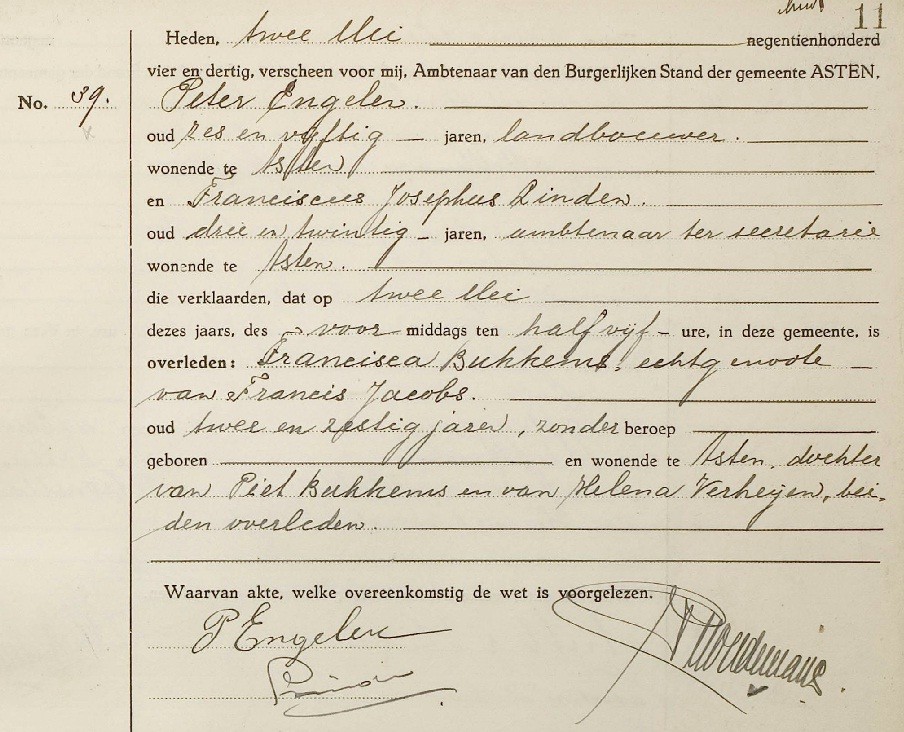 11
Heden, twee Mei negentienhonderd
vier en dertig, verscheen voor mij, Ambtenaar van den Burgerlijken Stand der gemeente ASTEN,
No. 39. Peter Engelen.
oud zes en vijftig jaren, landbouwer.
wonende te Asten
en Franciscus Josephus Linden.
oud drie en twintig jaren, ambtenaar ter secretarie
wonende te Asten.
die verklaarden, dat op twee Mei
dezes jaars, des voor middags ten half vijf ure, in deze gemeente, is
overleden: Francisca Bukkems, echtgenoote
van Francis Jacobs.
oud twee en zestig jaren, zonder beroep
geboren en wonende te Asten, dochter
van Piet Bukkems en van Helena Verheijen, bei-
den overleden.
Waarvan akte, welke overeenkomstig de wet is voorgelezen.
P Engelen